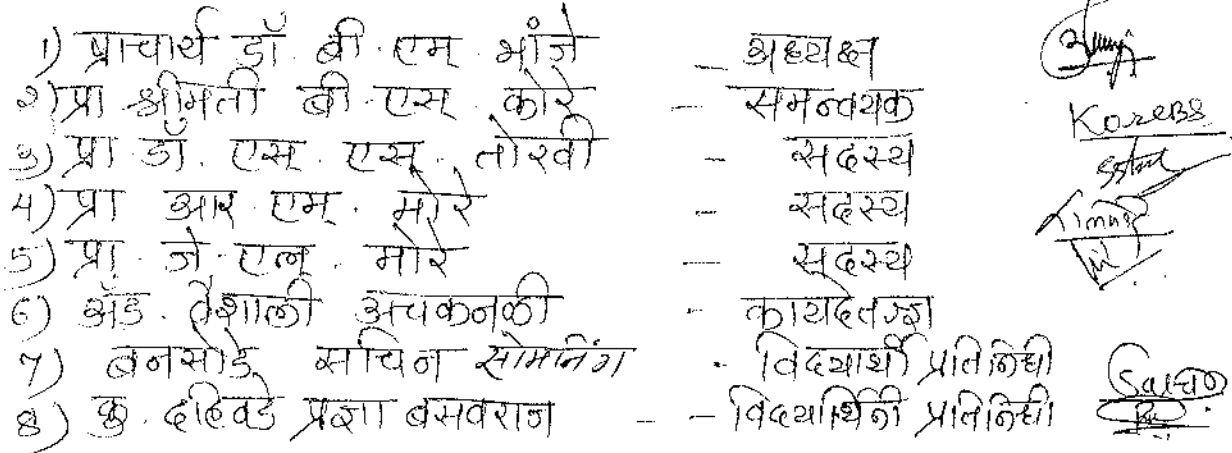 1) प्राचार्य डॉ. बी. एम. भांजे - अध्यक्ष
२) प्रा श्रीमती बी. एस. कोरे - समन्वयक KoreBS
3) प्रा डॉ. एस. एस. तोरवी - सदस्य
4) प्रा आर. एम. मोरे - सदस्य
5) प्रा. जे. एल. मोरे - सदस्य
6) अॅड. वैशाली अचकनळी - कायदेतज्ज्ञ
7) बनसोडे सचिन सोमनिंग - विद्यार्थी प्रतिनिधी
8) कु. दहिवडे प्रज्ञा बसवराज - विद्यार्थिनी प्रतिनिधी